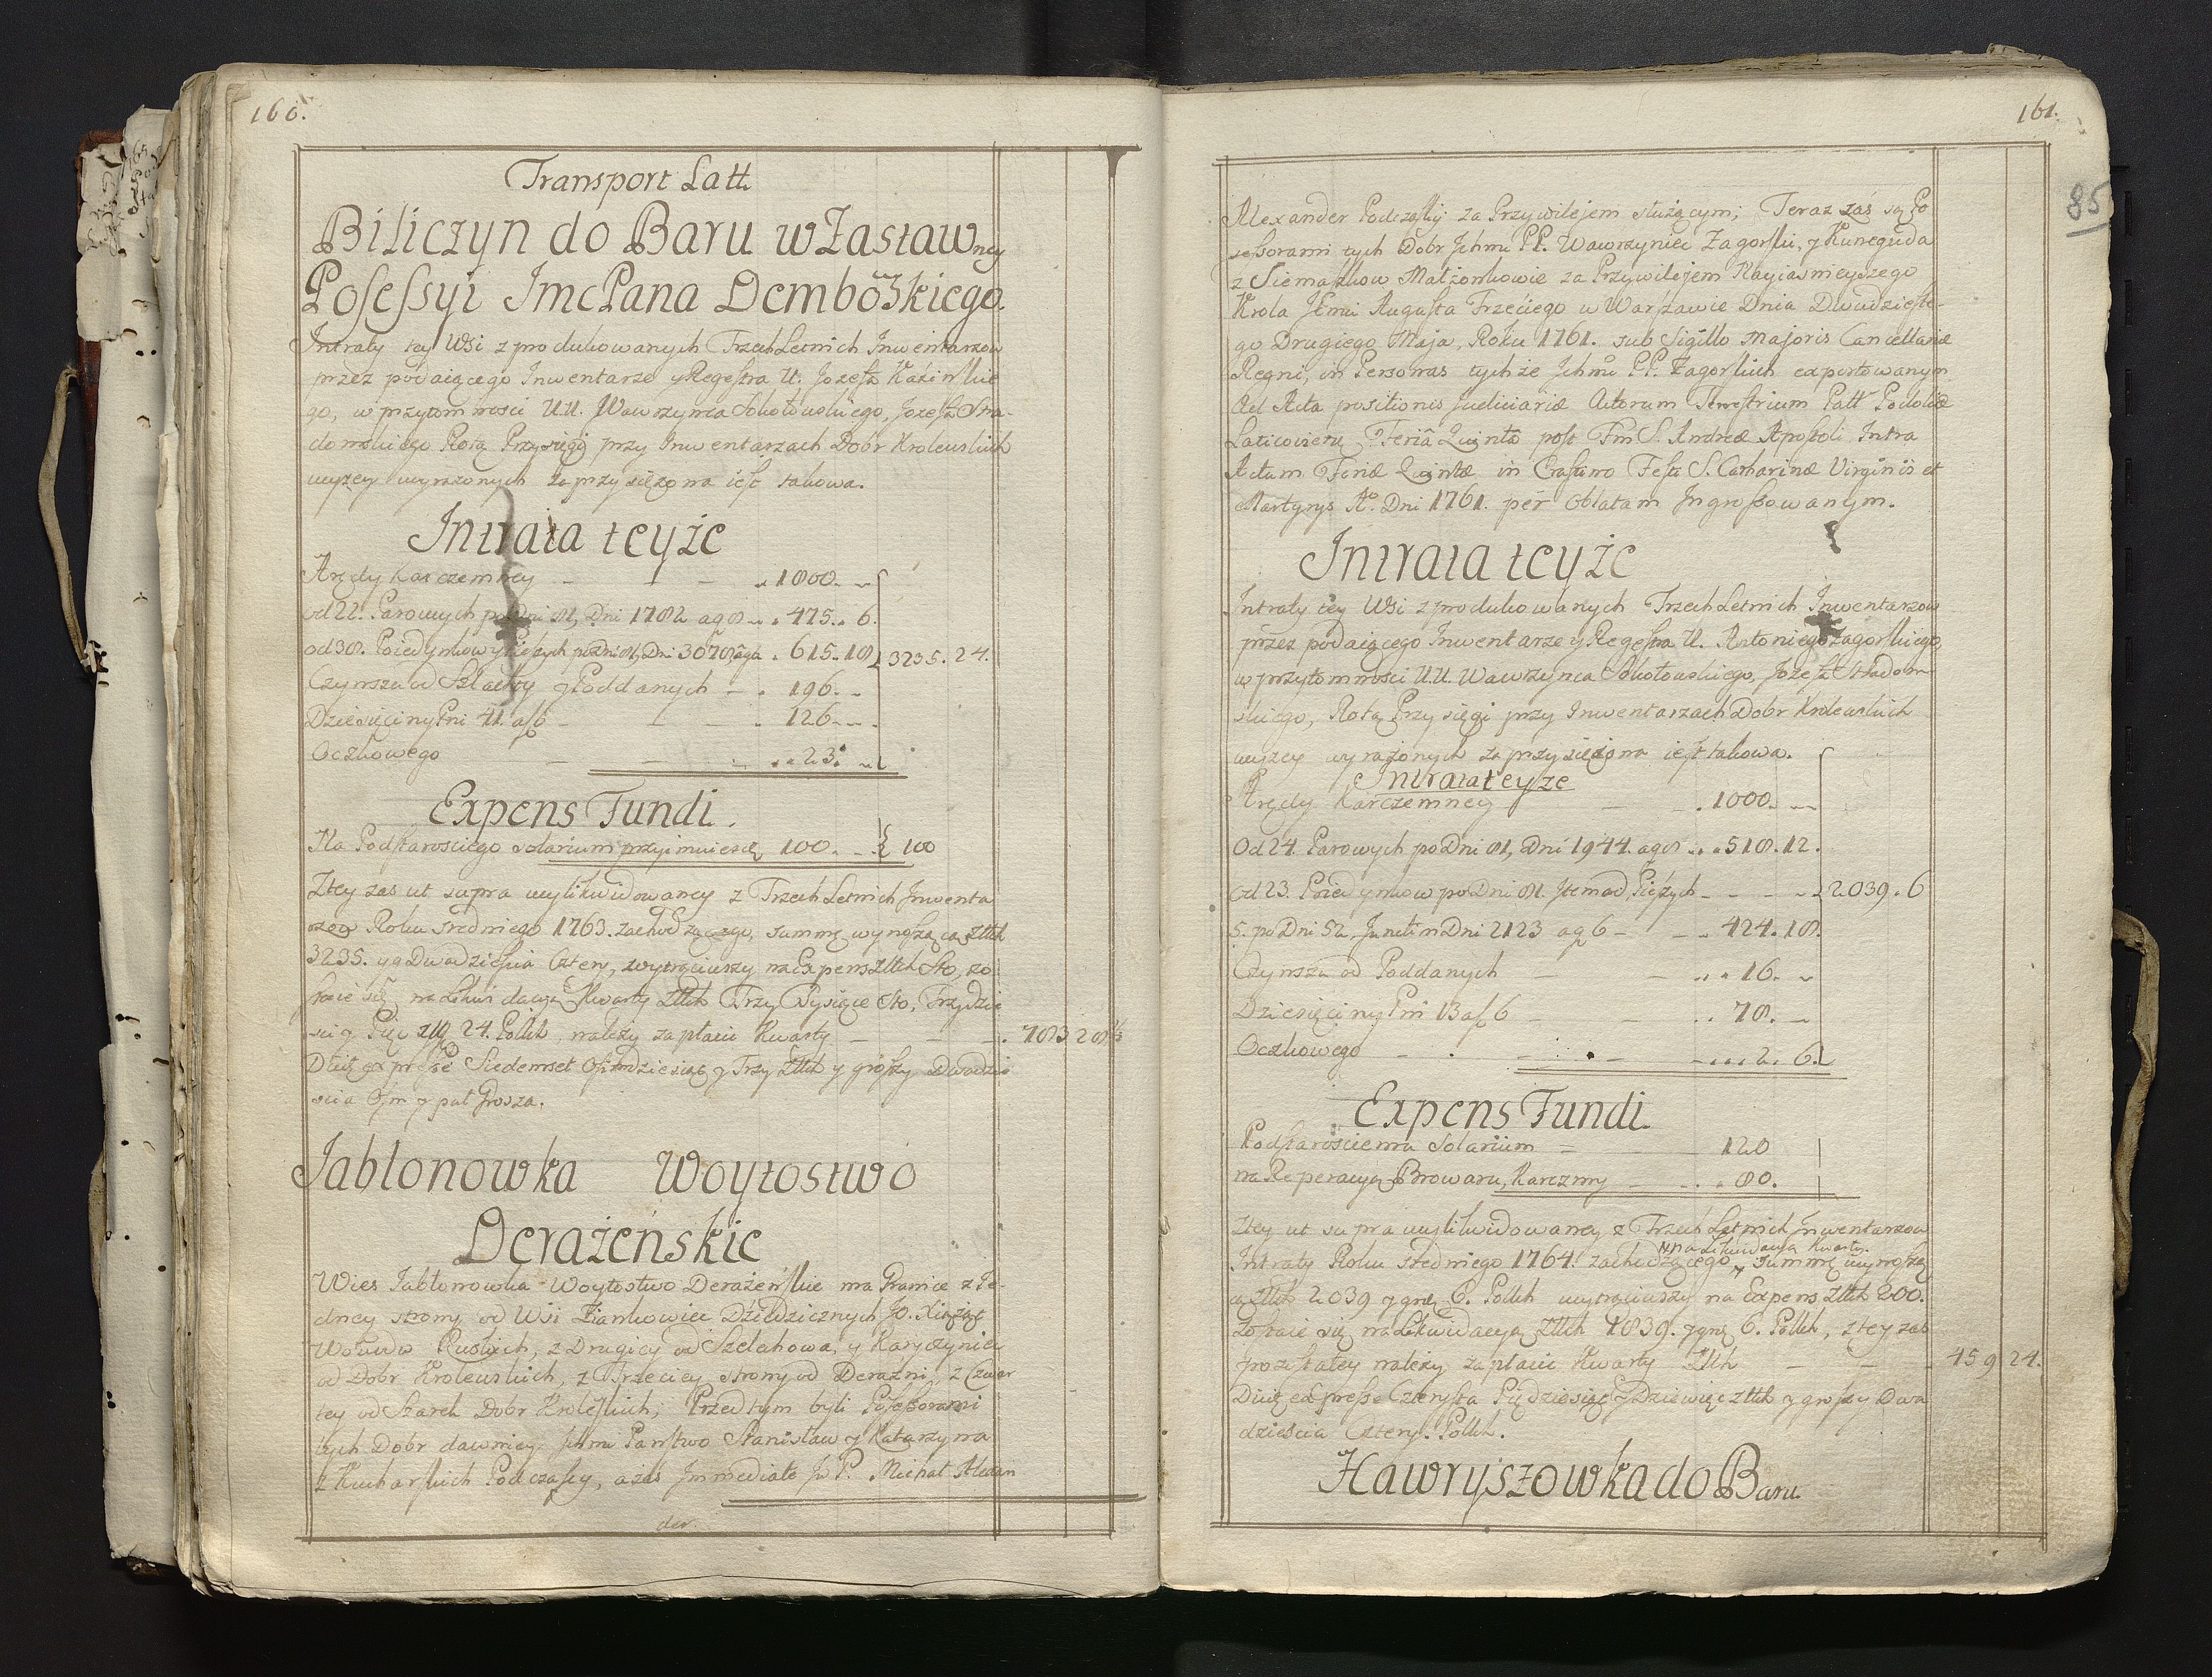 160.
Transport Latt.
Biliczyn do Baru w Zastawney
Posessyi Jmc Pana Dembőskiego.
Intraty tey Wsi z produkowanych Trzech Letnich Inwentarzow
przez podaiącego Inwentarze y Regestra U. Jozefa Kaźinskie
go, w przytomnosci U.U. Wawrzynca Sokołowskiego, Jozefa Stra-
domskiego Rotą Przysięgi przy Inwentarzach Dobr Krolewskich
wyzey wyrazonych zaprzysięzona iest takowa.
Intrata teyże
Arędy Karczemney - - - 1800. -
od 22. Parowych po Dni 81, Dni 1782 a g 8 - 475. 6.
od 38. Poiedynkow y Pieszych po Dni 81, Dni 3078 a g 6 . 615. 18 3235. 24.
Czynszu od Szlachty y Poddanych - . 196. -
Dziesięciny Pni 41. a f 6 - - - 126 - -
Oczkowego - - - 23. -
Expens Fundi.
Na Podstarosciego solarium przyimuie się 100. - 100
Ztey zas ut supra wylikwidowaney z Trzech Letnich Inwenta
rzow Roku sredniego 1763. zachodzącego, summę wynoszącą Ztłch
3235. y g Dwadziescia Cztery, wytrąciwszy na Expens Ztłch Sto, zo
staie się na Likwidacyą Kwarty Ztłch Trzy Tysiące Sto, Trzydzie
sci y Pięc złłg 24. Pollch, należy zapłacić Kwarty - - - . 783 28 ½
Dicit expresse Siedemset Osimdziesiąt y Trzy Ztłch y groszy Dwadzie
scia Osm y puł Grosza.
Jabłonowka Woytostwo
Derażeńskie
Wies Jabłonowka Woytostwo Derażeńskie ma Granice z Je-
dney strony od Wsi Ziankowiec Dziedzicznych Jo. Xiążąt
Woiewo Ruskich, z Drugiey od Szelechowa, y Karyczyniec
od Dobr Krolewskich, z Trzeciey strony od Derazni, z Czwar
tey od Szarek Dobr Krolestkich; Przed tym byli Posessorami
tych Dobr dawniey Jchmc Państwo Stanisław y Katarzyna
z Kucharskich Podczasky, a zas Immediate Jw P. Michał Alexan
der.
161.
85
Alexander Podczasky za Przywilejem służącym; Teraz zaś są Po
sessorami tych Dobr Jchmc PP. Wawrzyniec Zagorski, y Kunegunda
z Siemaszkow Małżonkowie za Przywilejem Nayiasnieyszego
Krola JEmci Augusta Trzeciego w Warszawie Dnia Dwudzieste-
go Drugiego Maja, Roku 1761. sub Sigillo majoris Cancellariæ
Regni, in Personas tychże Jchmc PP. Zagorskich exportowanym
Ad Acta positionis judiciariæ Actorum Terrestrium Patt Podoliæ
Laticoviens Feriâ Quintâ post Fm S. Andreæ Apostoli Intra
Actum Feriæ Quintæ in Crastino Festi S. Catharinæ Virginis et
Martyrys Ao. Dni 1761. per Oblatam Ingrossowanym.
Intrata teyże
Intraty tey Wsi z produkowanych Trzech Letnich Inwentarzow
przez podaiącego Inwentarze y Regestra U. Antoniego Zagorskiego,
w przytomnosci U.U. Wawrzynca Sokołowskiego, Jozefa Stradom-
skiego, Rotą Przysięgi przy Inwentarzach Dobr Krolewskich
wyzey wyrażonych zaprzysiężona iest takowa.
Intrata teyze
Arędy Karczemney - - . 1000. -
Od 24. Parowych po Dni 81, Dni 1944. a g 8 . . 518. 12.
od 23. Poiedynkow po Dni 81. Item od Pieszych - - - - 2039. 6
5. po Dni 52, Junctim Dni 2123 a g 6 - - 424. 18.
Czynszu od Poddanych - - . 16. -
Dziesięciny Pni 13 a f 6 - - . 78. -
Oczkowego - - - - . . 2. 6.
Expens Fundi.
Podstarosciemu Solarium - - 120
na Reperacyą Browaru, Karczmy - . 80.
Ztey ut supra wylikwidowaney z Trzech Letnich Inwentarzow
na Likwidacya Kwarty.
Intraty Roku sredniego 1764. zachodzącego, Summę wynoszą
cą Ztłch 2039 y grq 6. Pollch wytrąciwszy na Expens Ztłch 200.
Zostaie się na Likwidacyą Ztłch 1839. y grq 6. Pollch, z tey zas
pozostałey należy zapłacić Kwarty Ztłch - - - 459 24.
Dicit expresse Czterysta Pięćdziesiąt y Dziewięc Ztłch y groszy Dwa
dzieścia Cztery. Pollch.
Hawryszowka do Baru